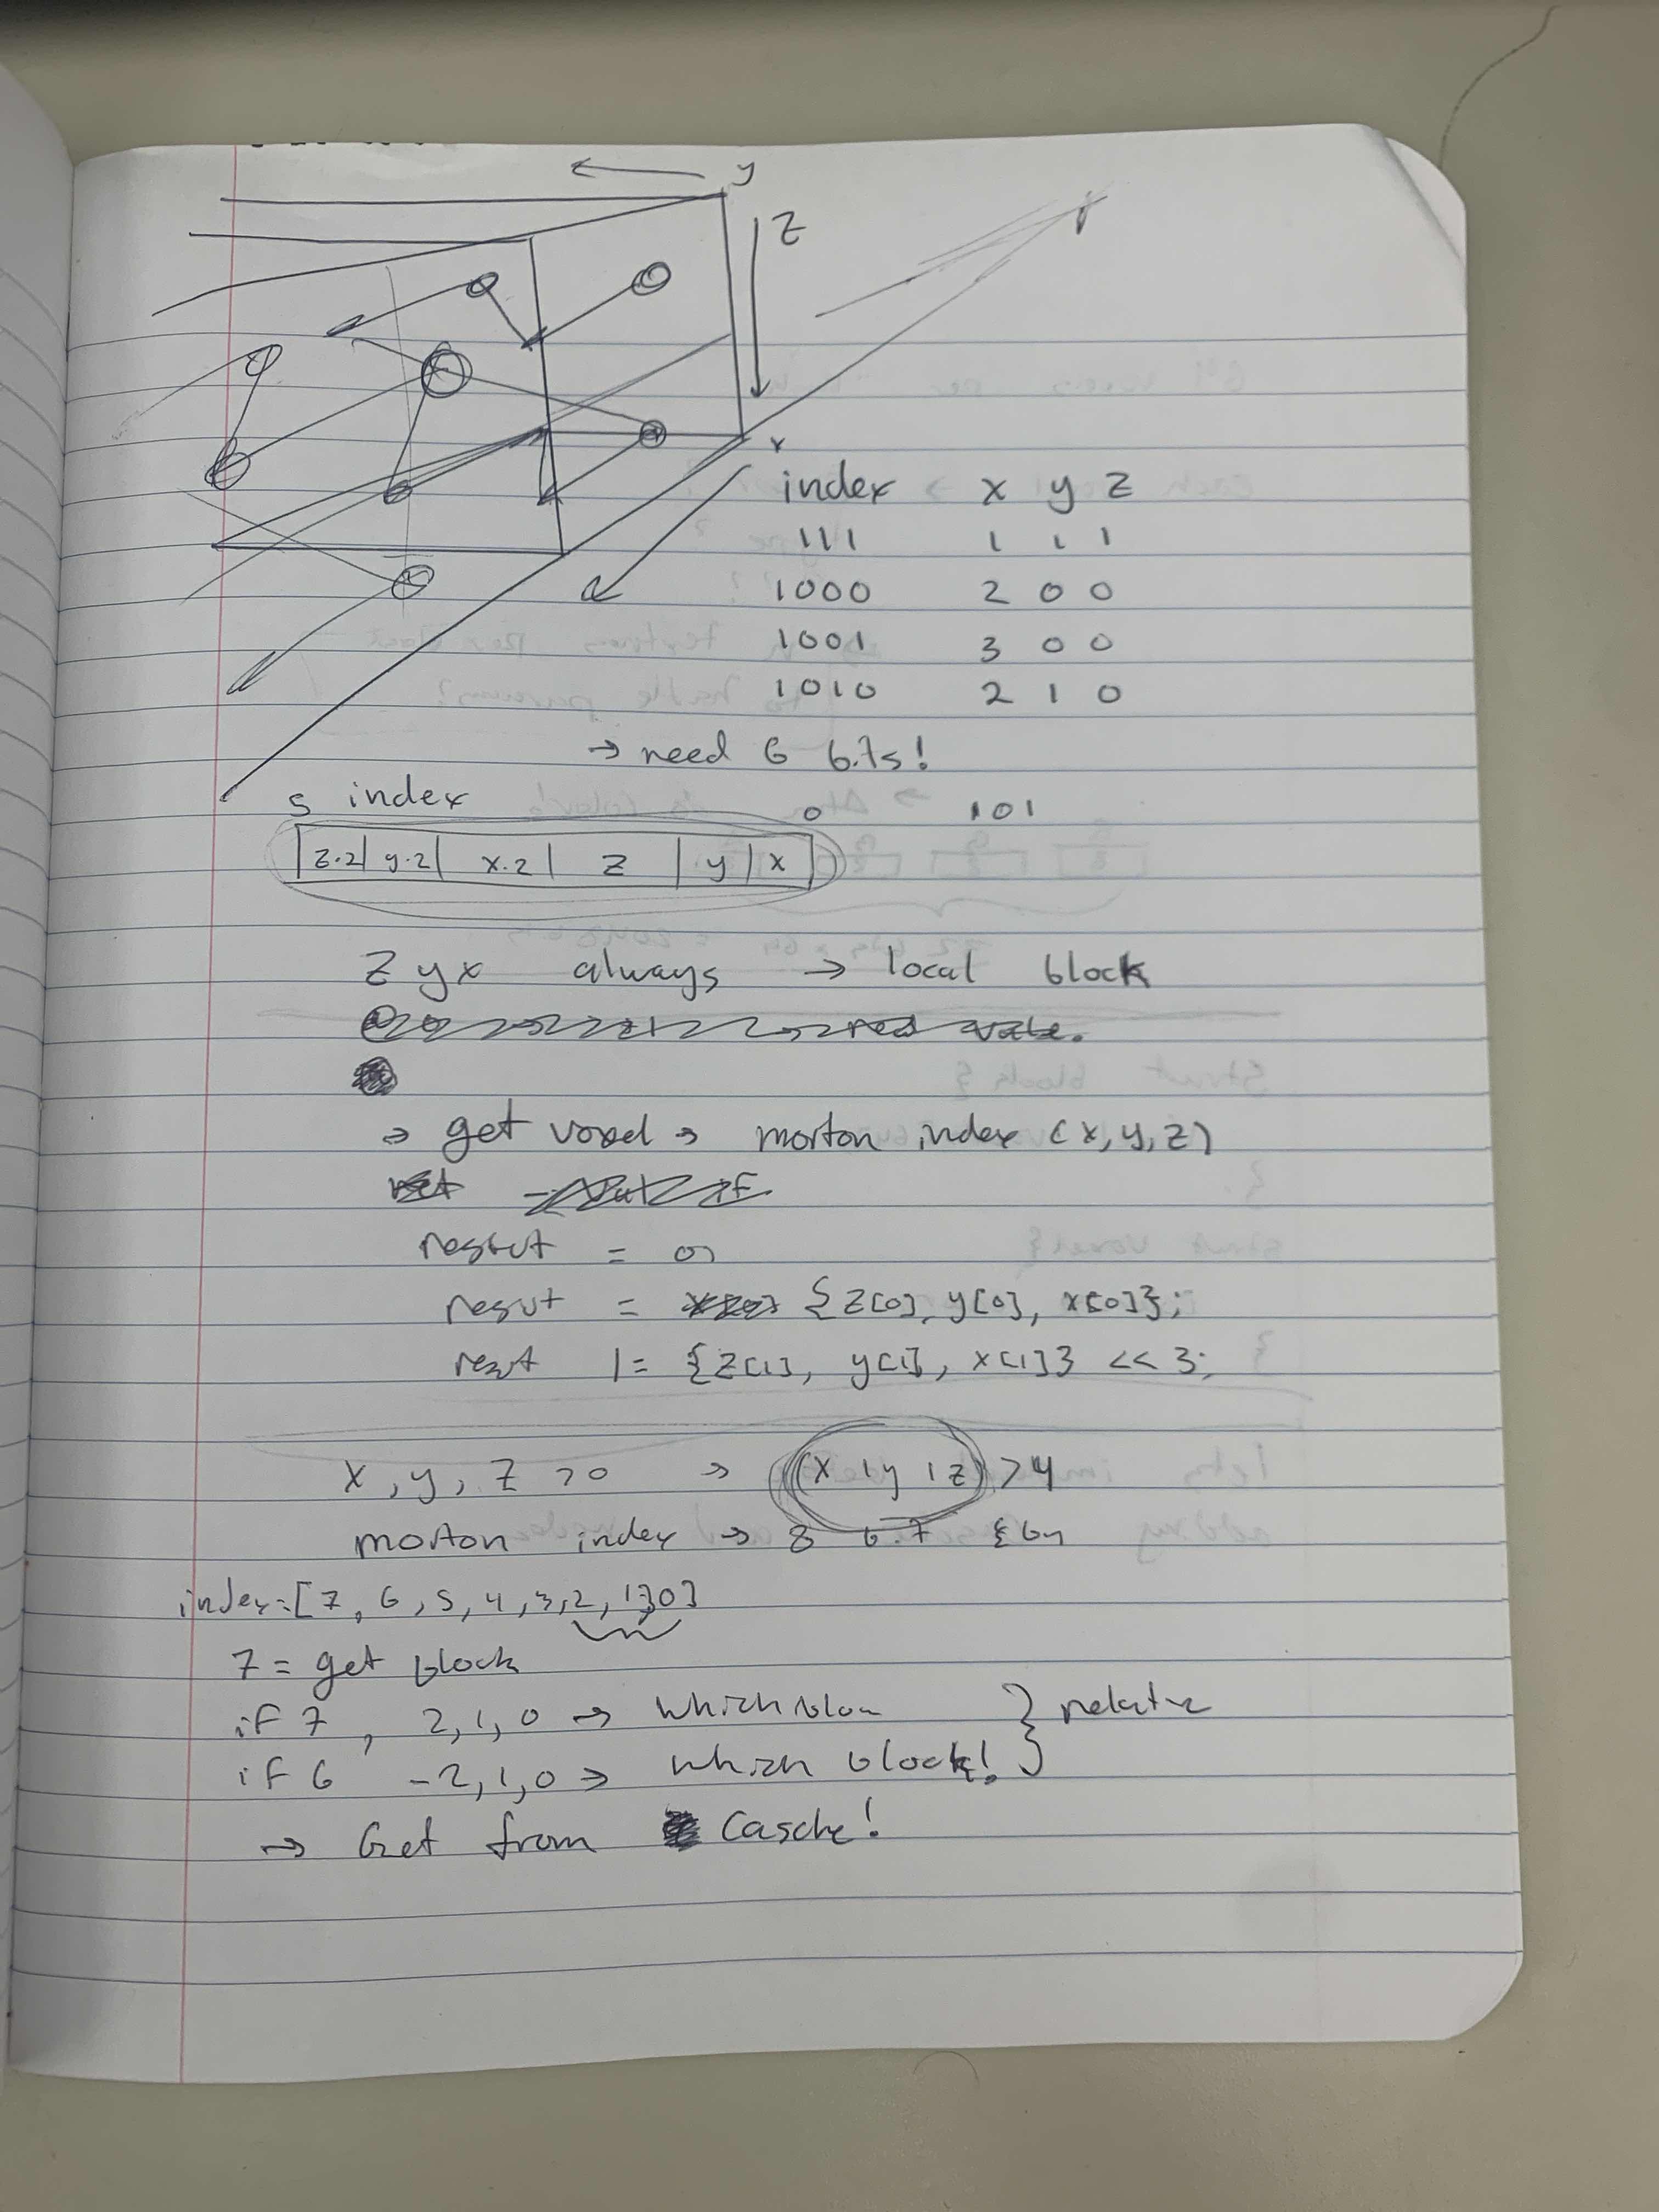 y
z
x
index x y z
111 1 1 1
1000 2 0 0
1001 3 0 0
1010 2 1 0
→ need 6 bits!
5 index 0 101
|z.2|y.2| x.2| z |y|x|
z y x always → local block
→ get voxel → morton index (x, y, z)
result = 0;
result = {z[0], y[0], x[0]};
result |= {z[1], y[1], x[1]} << 3;
x, y, z > 0 → (x | y | z) > 4
morton index → 8 bit
index = [7, 6, 5, 4, 3, 2, 1, 0]
7 = get block
if 7, 2, 1, 0 → which block } relative
if 6 -2, 1, 0 → which block!
→ Get from Casche!